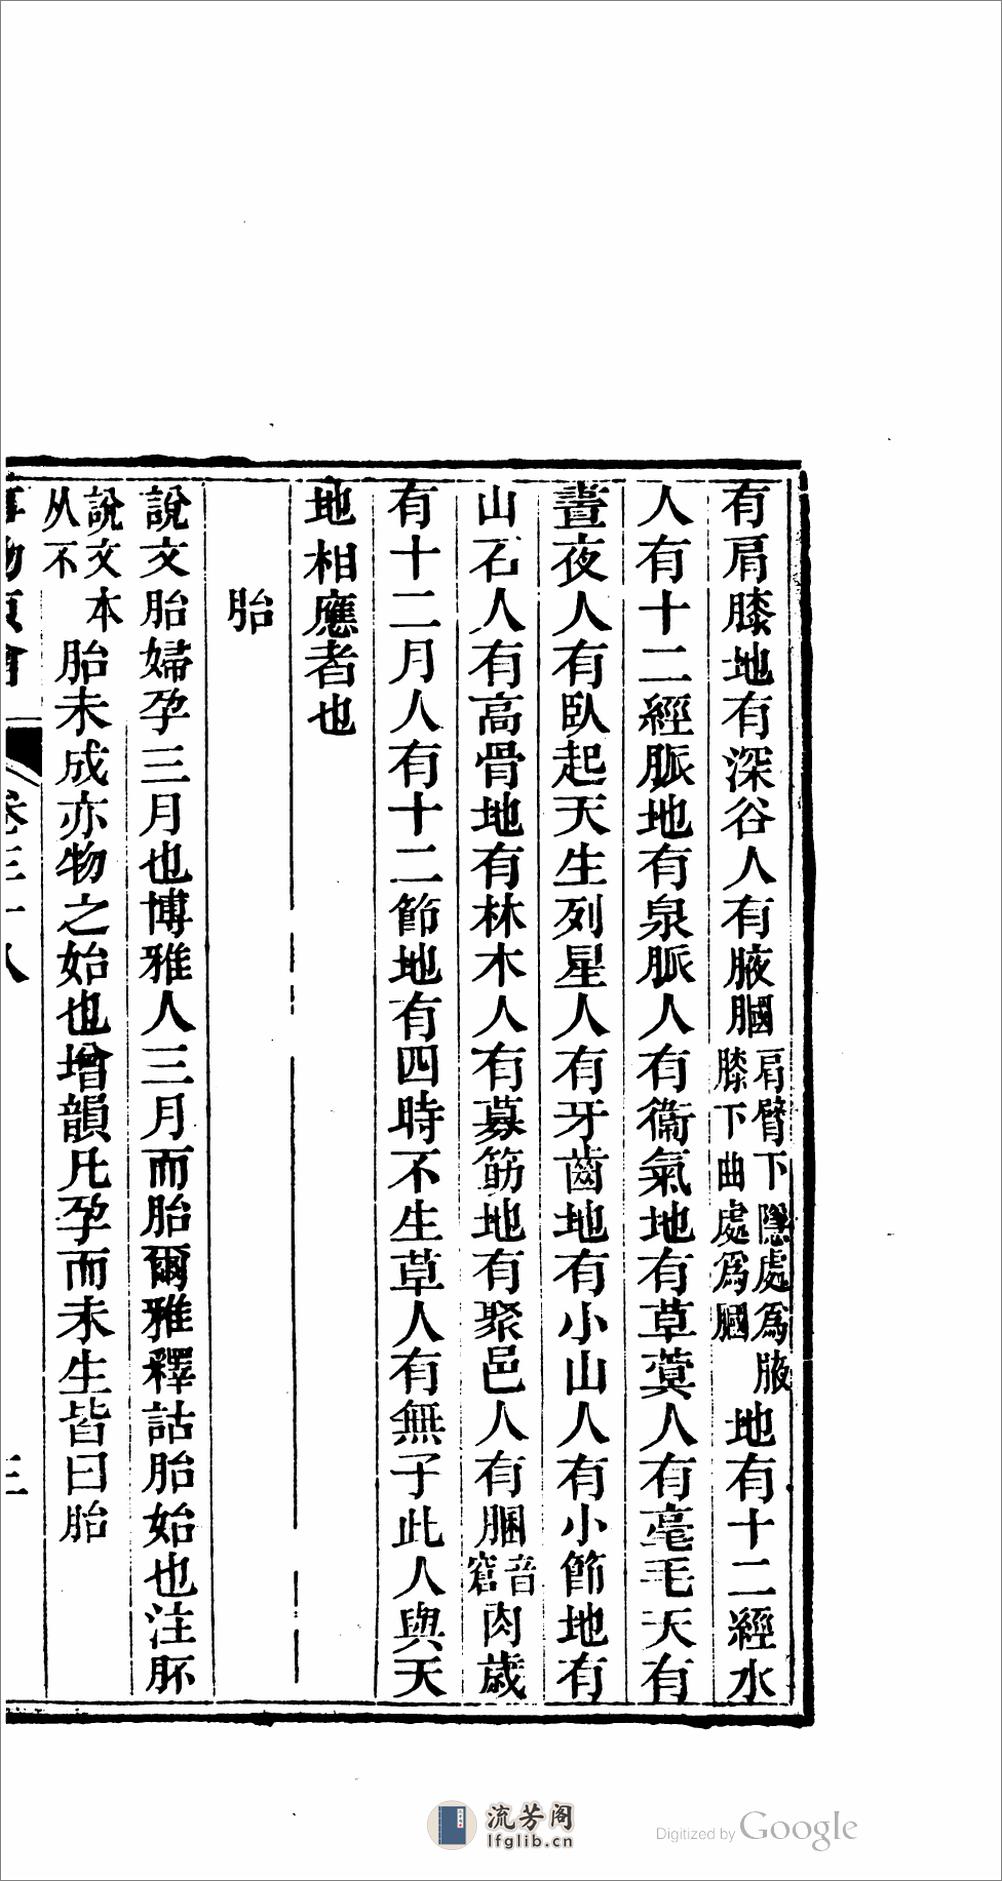 有肩膝地有深谷人有腋膕肩臂下隱處爲腋膝下曲處爲膕地有十二經水
人有十二經脈地有泉脈人有衞氣地有草蓂人有毫毛天有
晝夜人有臥起天生列星人有牙齒地有小山人有小節地有
山石人有高骨地有林木人有募筋地有聚邑人有䐃音窘肉歲
有十二月人有十二節地有四時不生草人有無子此人與天
地相應者也
胎
說文胎婦孕三月也博雅人三月而胎爾雅釋詁胎始也注胚
說文本从不胎未成亦物之始也增韻凡孕而未生皆曰胎
事物原會 卷三十八 三
流芳阁
lfglib.cn
Digitized by Google